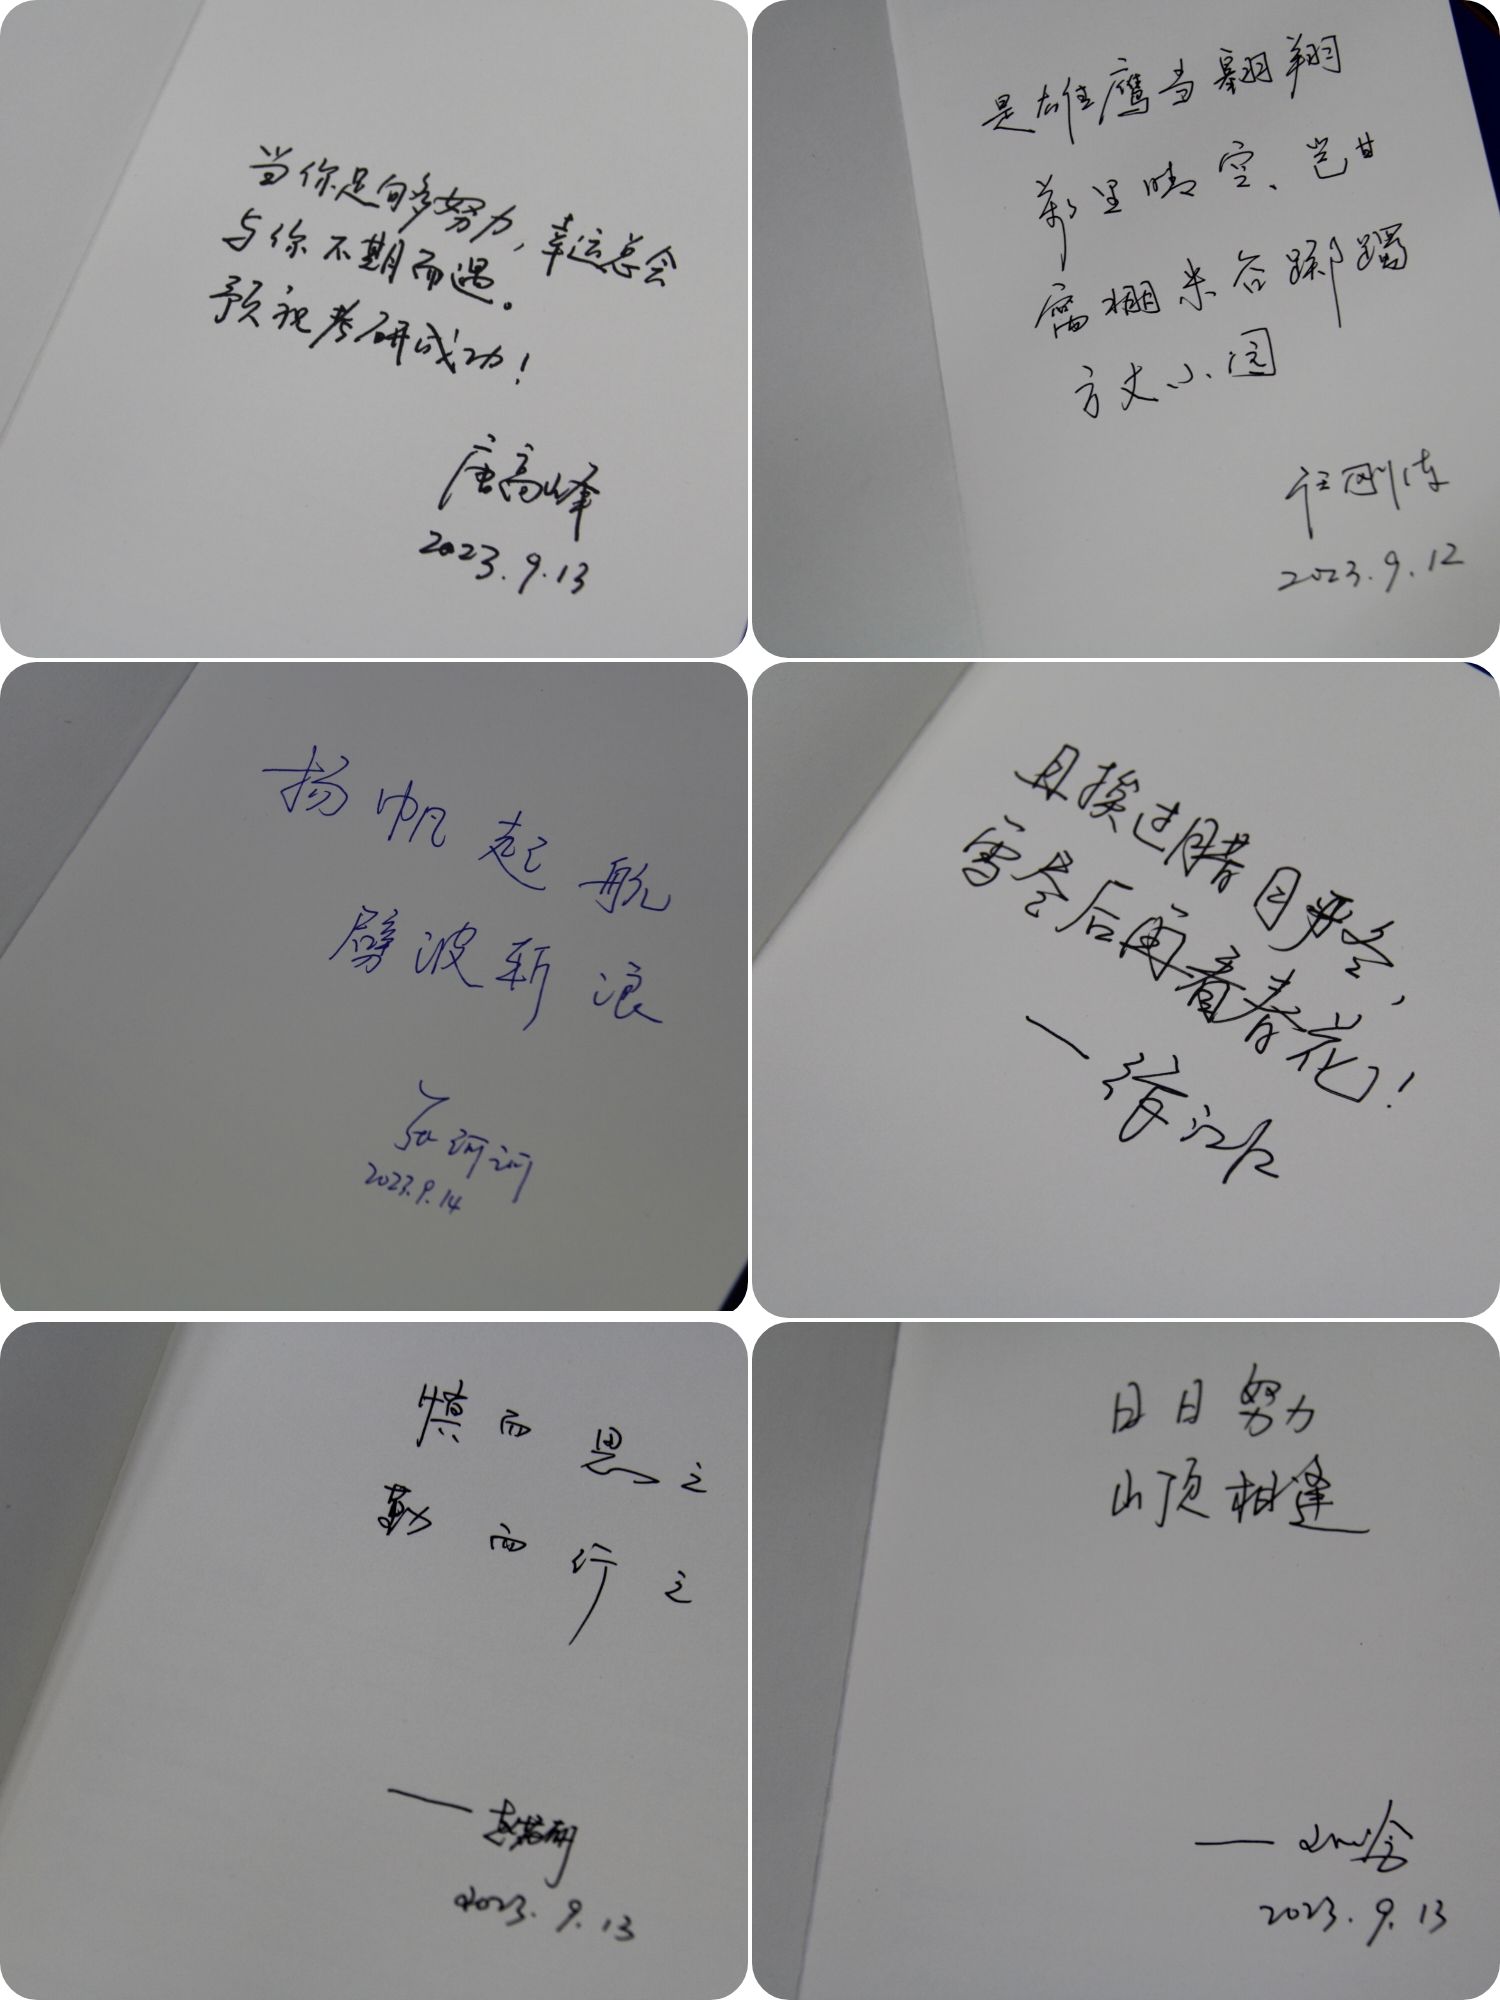 当你足够努力，幸运总会
与你不期而遇。
预祝考研成功！
唐高峰
2023.9.13
是雄鹰当翱翔
万里晴空、岂甘
窝棚米谷踯躅
方丈小园
2023.9.12
扬帆起航
劈波斩浪
2023.9.14
且挨过腊月严冬，
雪尽后再看春花！
慎而思之
勤而行之
2023.9.13
日日努力
山顶相逢
2023.9.13